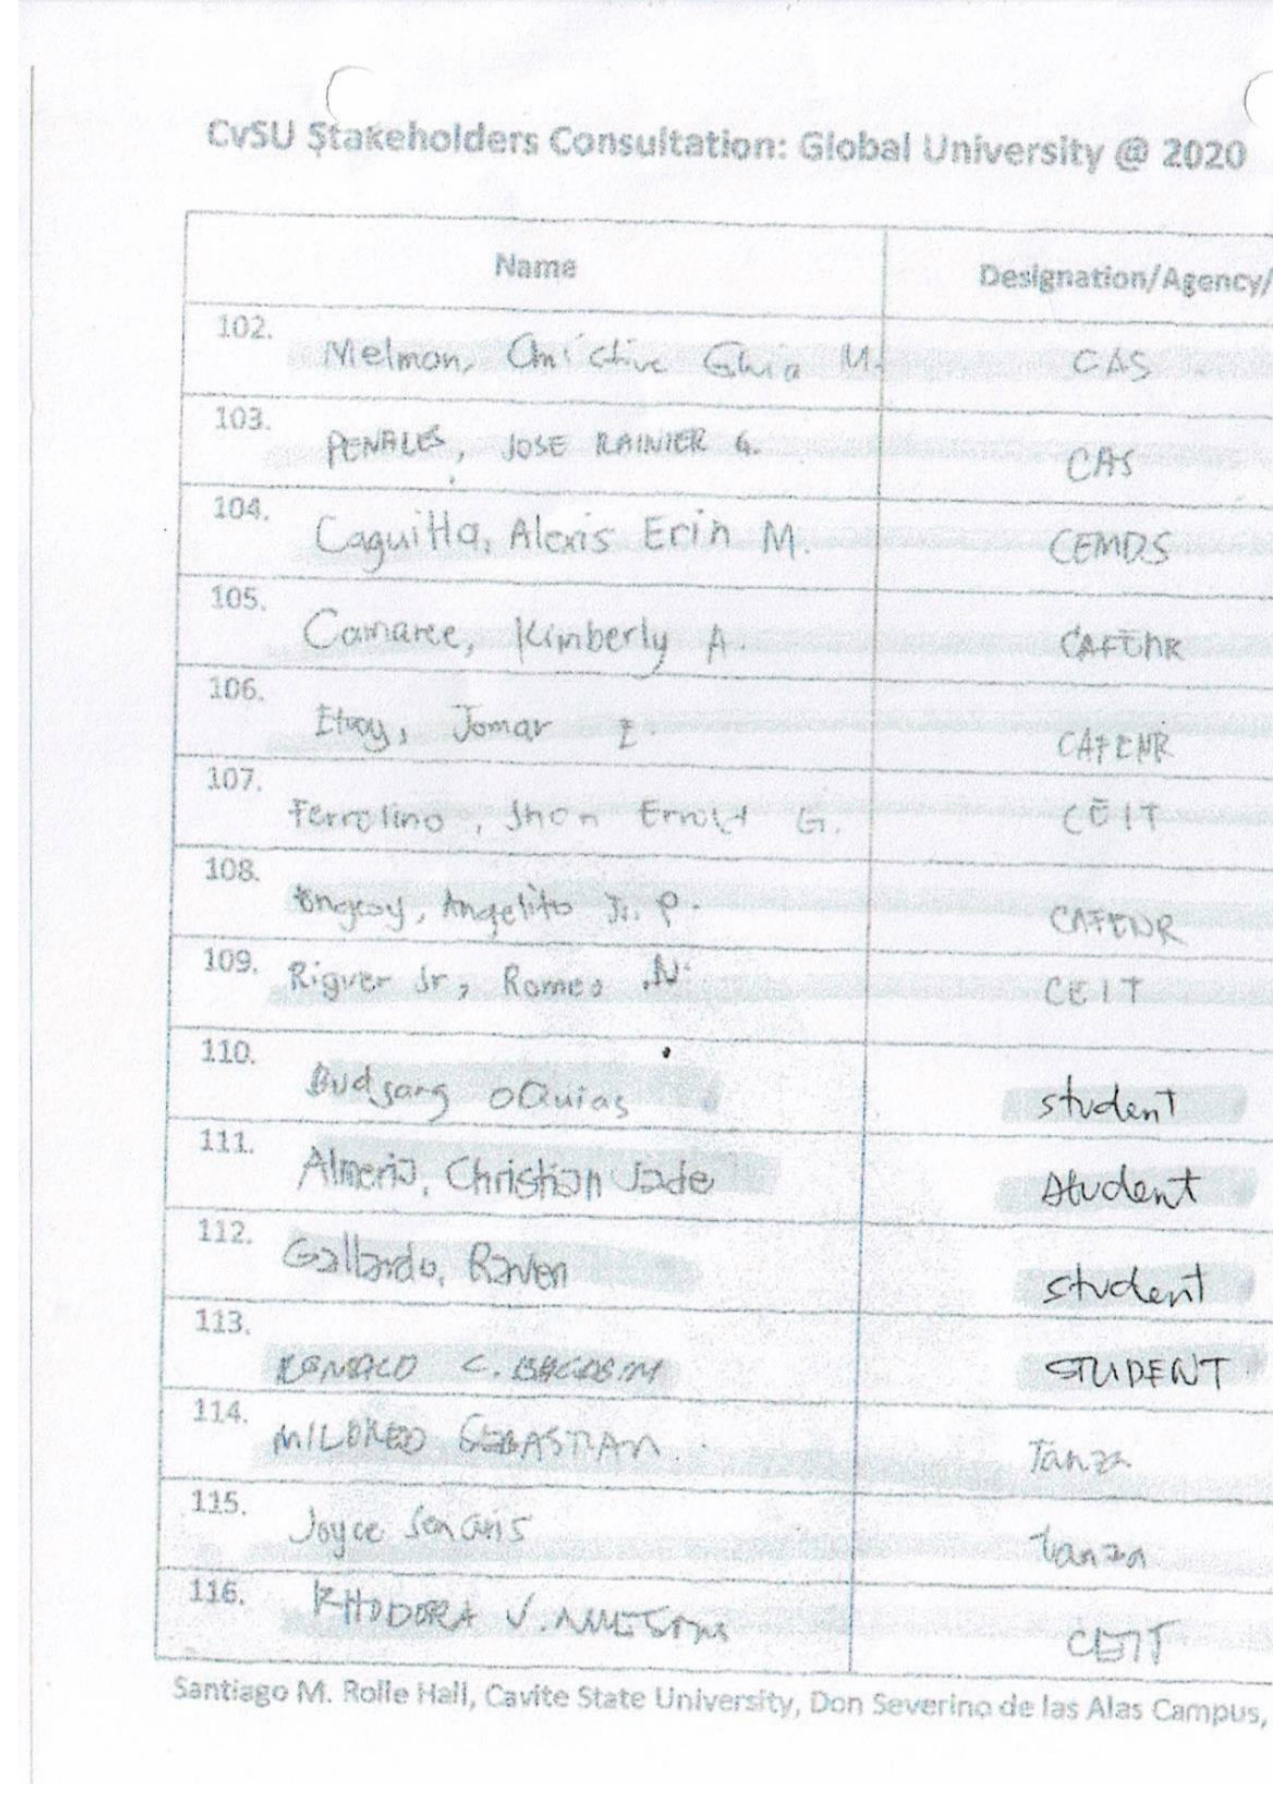 CvSU Stakeholders Consultation: Global University @ 2020
Name Designation/Agency/
102. Melmon, Ghia M. CAS
103. PENALES, JOSE RAINIER G. CAS
104. Caguitla, Alexis Erin M. CEMDS
105. Camaree, Kimberly A. CAFENR
106. Jomar CAFENR
107. Ferrolino, Jhon Errold G. CEIT
108. Angelito Jr. P. CAFENR
109. Rigver Jr, Romeo N. CEIT
110. Budjang OQuias student
111. Almeria, Christian Jade student
112. Gallardo, Raven student
113. C. STUDENT
114. MILDRED SEBASTIAN Tanza
115. Joyce Tanza
116. RHODORA V. CEIT
Santiago M. Rolle Hall, Cavite State University, Don Severino de las Alas Campus,